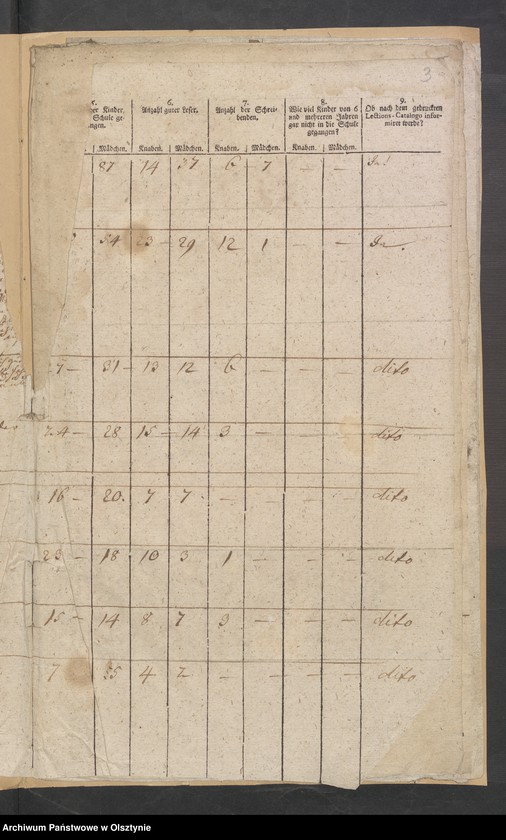 3
5. 6. 7. 8. 9.
Kinder, Anzahl guter Leser. Anzahl der Schrei- Wie viel Kinder von 6 Ob nach dem gedruckten
Schule ge- benden. und mehreren Jahren Lections-Catalogo infor-
gangen. gar nicht in die Schule miret werde?
gegangen?
Mädchen. Knaben. Mädchen. Knaben. Mädchen. Knaben. Mädchen.
87 14 37 6 7 — — Ja!
54 23 — 29 12 1 — — Ja.
— 31 — 13 12 6 — — — dito
24 — 28 15 — 14 3 — — — dito
16 — 20. 7 7 — — — — dito
23 — 18 10 3 1 — — — dito
15 — 14 8 7 3 — — — dito
7 25 4 2 — — — — dito
Archiwum Państwowe w Olsztynie